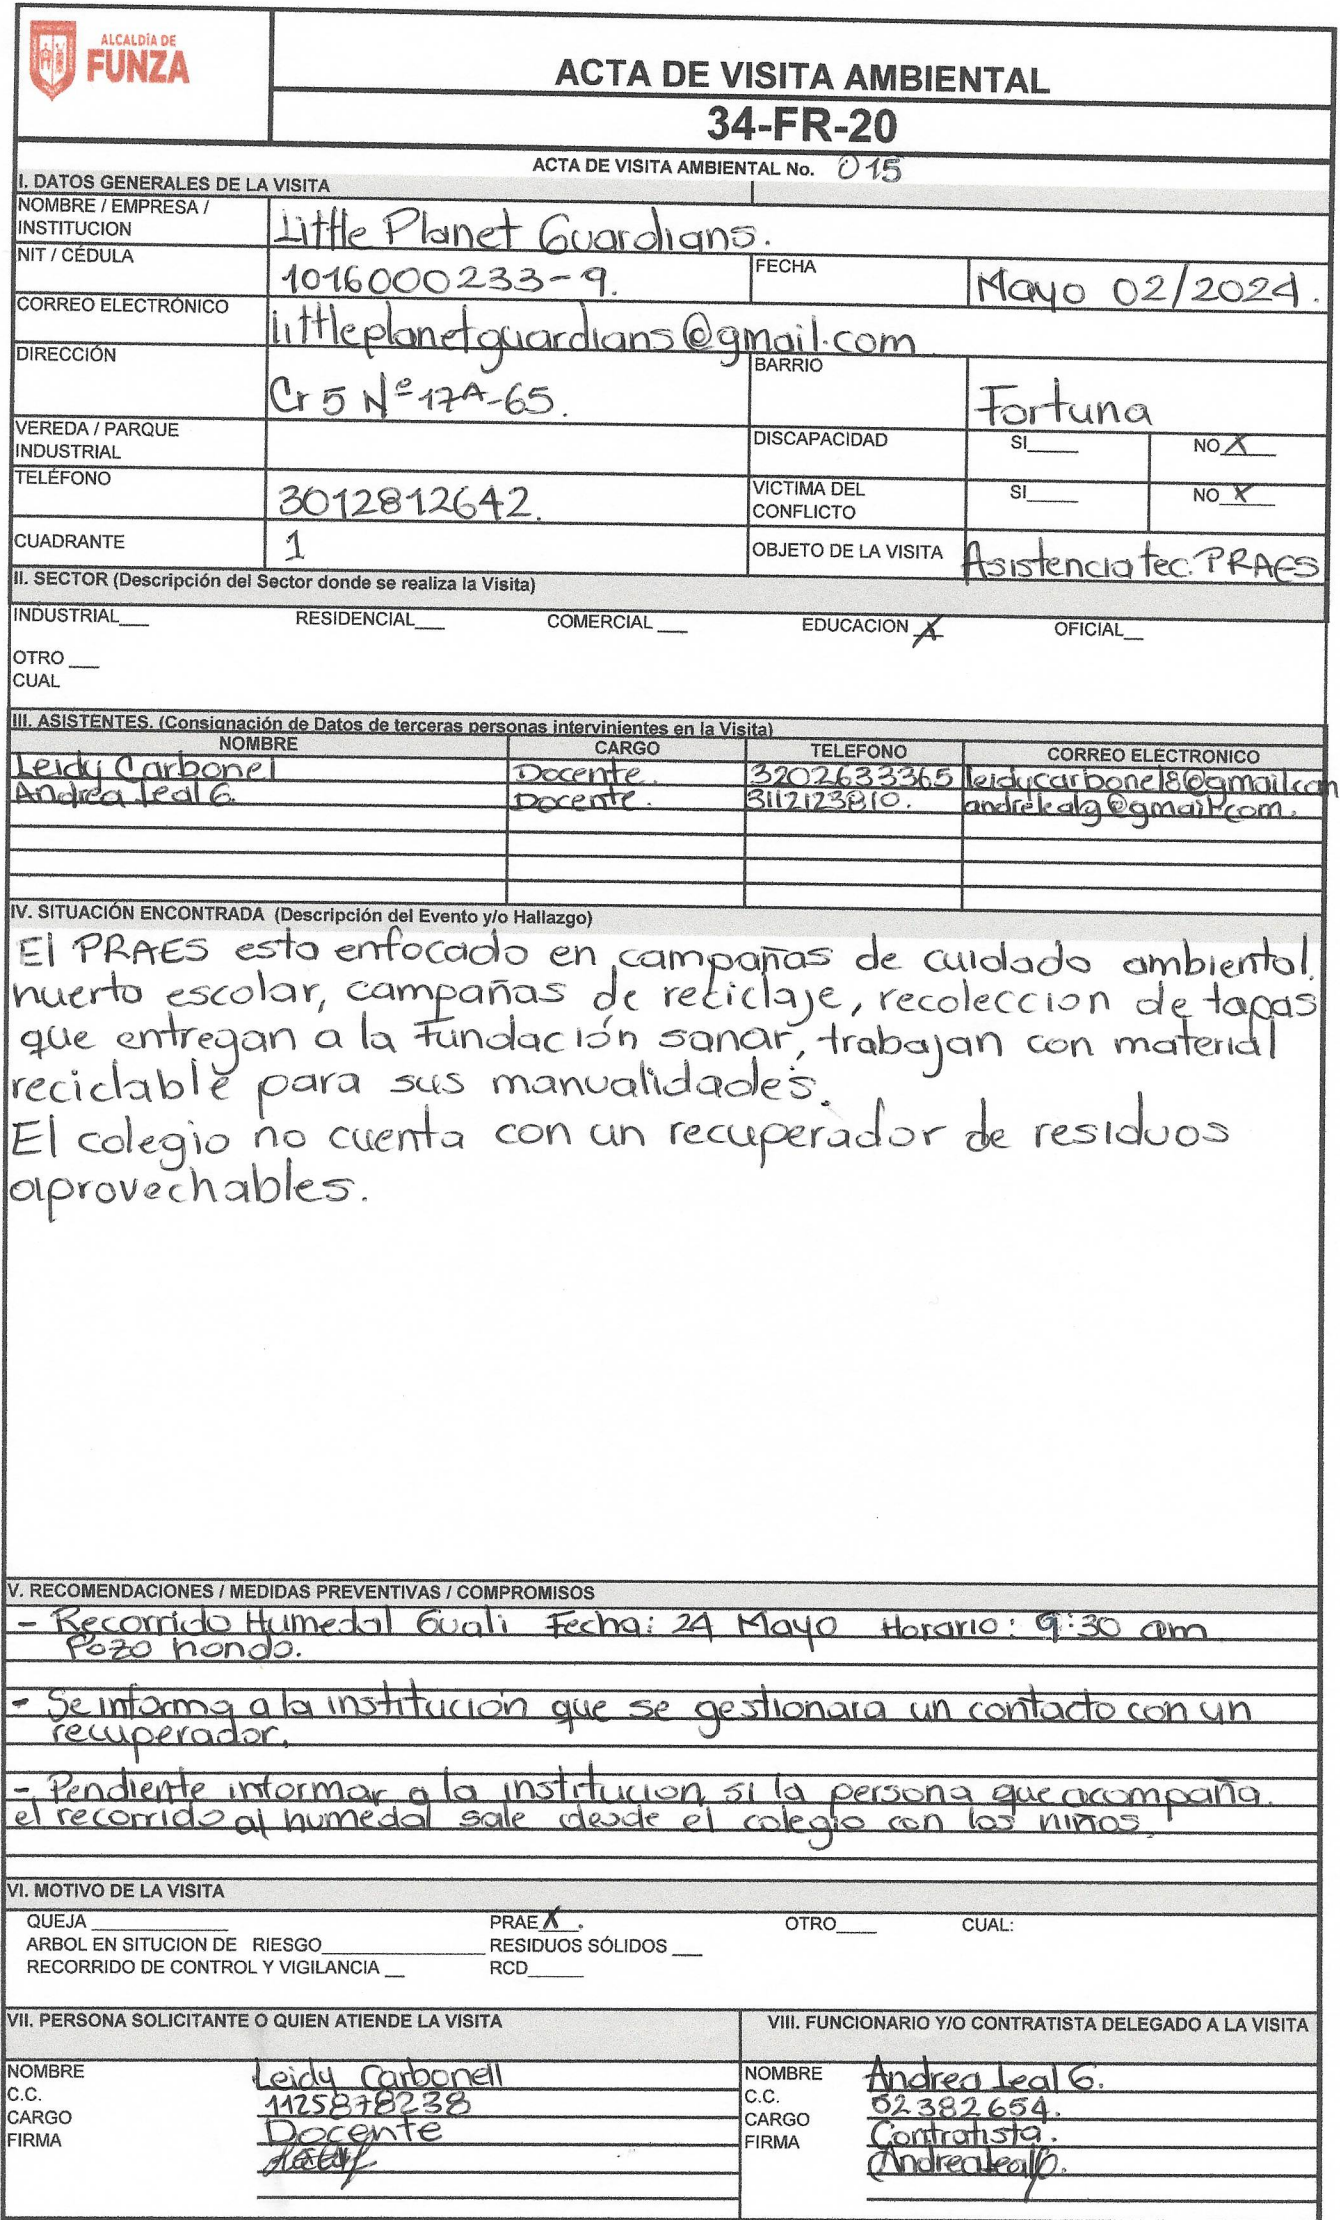 ALCALDÍA DE
FUNZA
ACTA DE VISITA AMBIENTAL
34-FR-20
ACTA DE VISITA AMBIENTAL No. 015
I. DATOS GENERALES DE LA VISITA
NOMBRE / EMPRESA /
INSTITUCION
Little Planet Guardians.
NIT / CÉDULA
1016000233-9.
FECHA
Mayo 02/2024.
CORREO ELECTRÓNICO
littleplanetguardians@gmail.com
DIRECCIÓN
Cr 5 Nº 17A-65.
BARRIO
Fortuna
VEREDA / PARQUE
INDUSTRIAL
DISCAPACIDAD SI____ NO X
TELÉFONO
3012812642.
VICTIMA DEL
CONFLICTO
SI____ NO X
CUADRANTE 1
OBJETO DE LA VISITA Asistencia tec. PRAES
II. SECTOR (Descripción del Sector donde se realiza la Visita)
INDUSTRIAL___ RESIDENCIAL___ COMERCIAL ___ EDUCACION X OFICIAL__
OTRO ___
CUAL
III. ASISTENTES. (Consignación de Datos de terceras personas intervinientes en la Visita)
NOMBRE CARGO TELEFONO CORREO ELECTRONICO
Leidy Carbonel Docente. 3202633365 leidycarbonel8@gmail.com
Andrea Leal G. Docente. 3112123810. andrelealg@gmail.com.
IV. SITUACIÓN ENCONTRADA (Descripción del Evento y/o Hallazgo)
El PRAES esta enfocado en campañas de cuidado ambiental,
huerto escolar, campañas de reciclaje, recoleccion de tapas
que entregan a la fundación sanar, trabajan con material
reciclable para sus manualidades.
El colegio no cuenta con un recuperador de residuos
aprovechables.
V. RECOMENDACIONES / MEDIDAS PREVENTIVAS / COMPROMISOS
- Recorrido Humedal Guali Fecha: 24 Mayo Horario: 9:30 am
Pozo hondo.
- Se informa a la institución que se gestionara un contacto con un
recuperador.
- Pendiente informar a la institucion si la persona que acompaña
el recorrido al humedal sale desde el colegio con los niños.
VI. MOTIVO DE LA VISITA
QUEJA ____________ PRAE X . OTRO____ CUAL:
ARBOL EN SITUCION DE RIESGO______________ RESIDUOS SÓLIDOS ___
RECORRIDO DE CONTROL Y VIGILANCIA __ RCD_____
VII. PERSONA SOLICITANTE O QUIEN ATIENDE LA VISITA
NOMBRE Leidy Carbonell
C.C. 1125878238
CARGO Docente
FIRMA
VIII. FUNCIONARIO Y/O CONTRATISTA DELEGADO A LA VISITA
NOMBRE Andrea Leal G.
C.C. 52382654.
CARGO Contratista.
FIRMA Andrea Leal G.